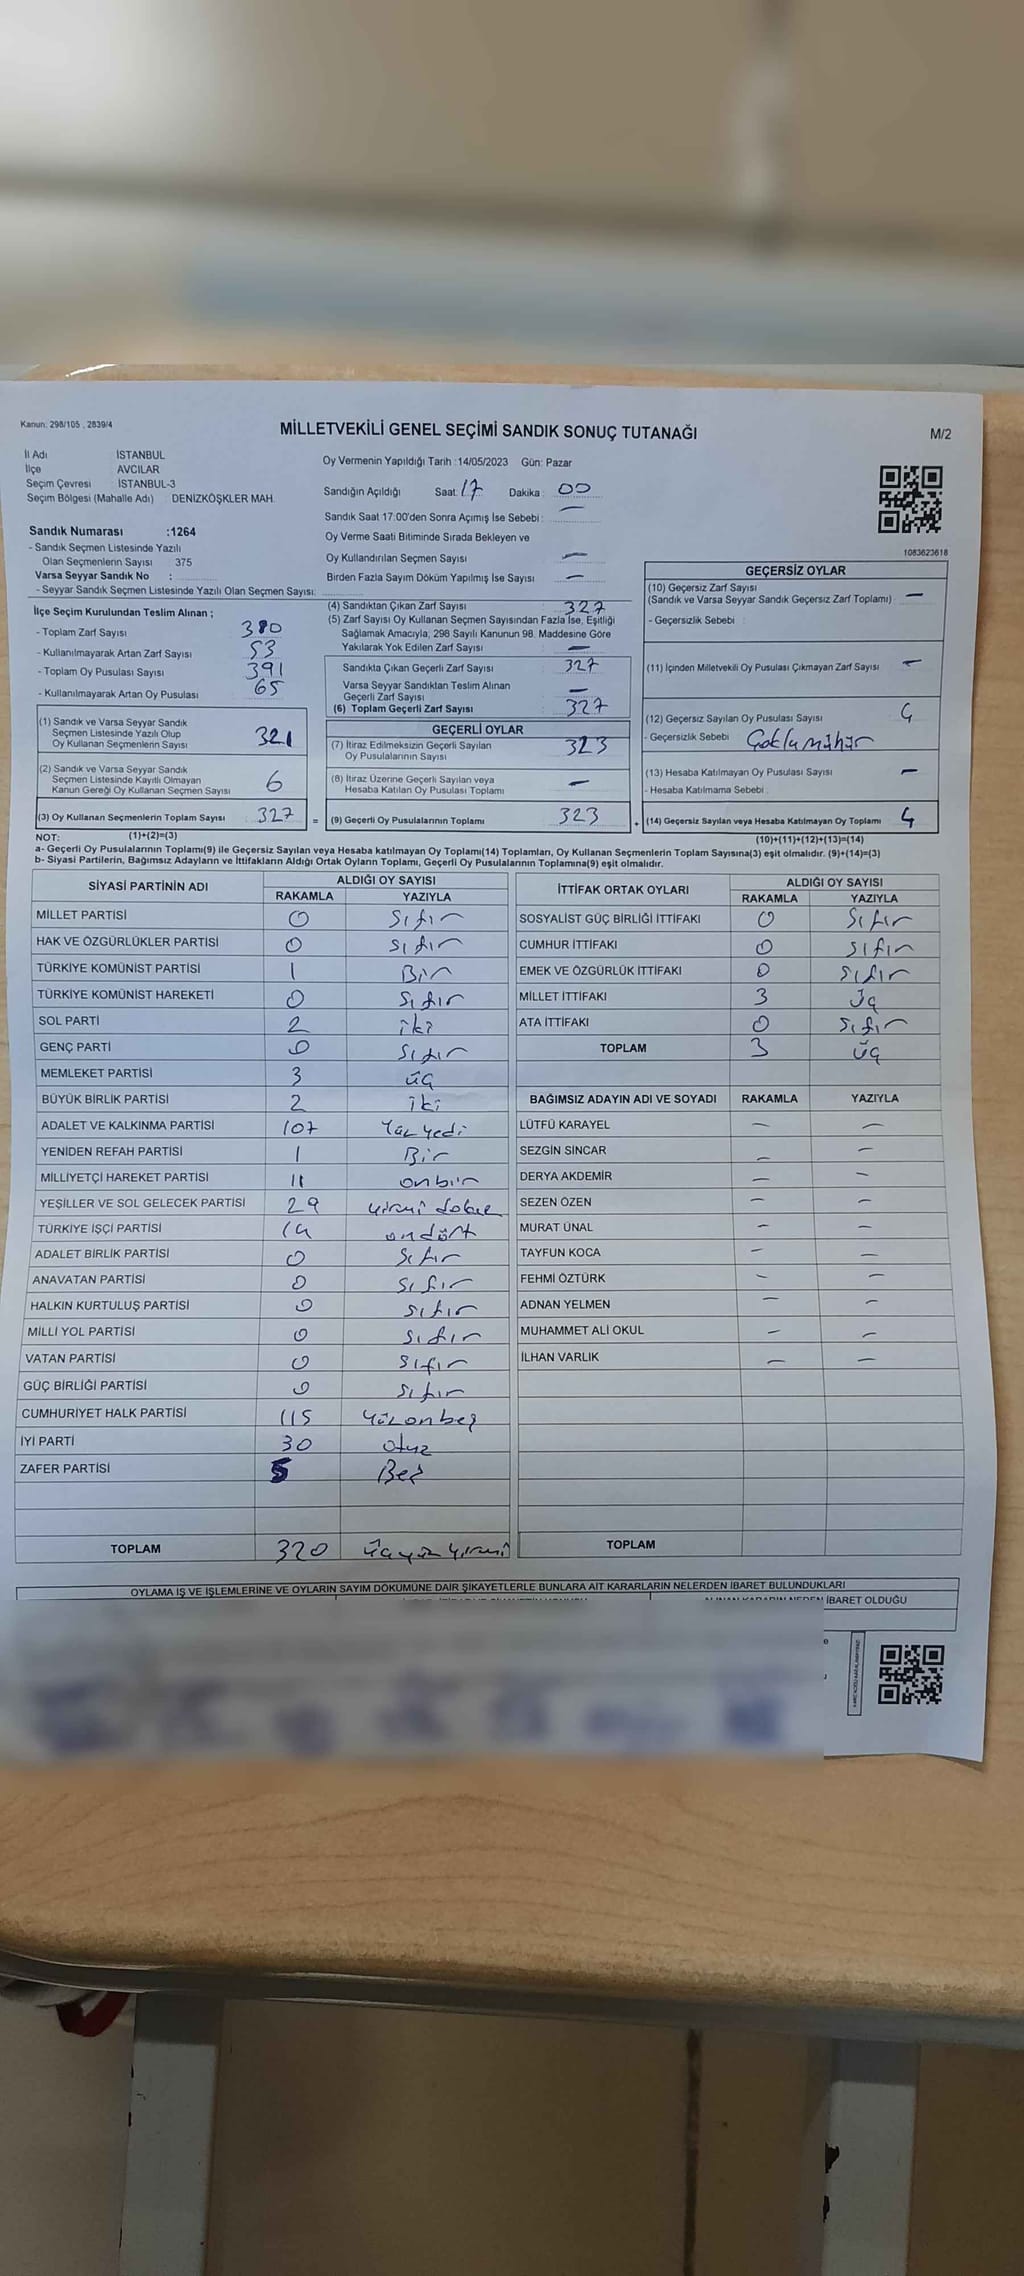 Kanun: 298/105 , 2839/4
MİLLETVEKİLİ GENEL SEÇİMİ SANDIK SONUÇ TUTANAĞI
M/2
İl Adı İSTANBUL
İlçe AVCILAR
Seçim Çevresi : İSTANBUL-3
Seçim Bölgesi (Mahalle Adı) : DENİZKÖŞKLER MAH.
Sandık Numarası :1264
- Sandık Seçmen Listesinde Yazılı
Olan Seçmenlerin Sayısı : 375
Varsa Seyyar Sandık No :
- Seyyar Sandık Seçmen Listesinde Yazılı Olan Seçmen Sayısı:
Oy Vermenin Yapıldığı Tarih :14/05/2023 Gün: Pazar
Sandığın Açıldığı Saat: 17 Dakika : 00
Sandık Saat 17:00'den Sonra Açımış İse Sebebi : —
Oy Verme Saati Bitiminde Sırada Bekleyen ve
Oy Kullandırılan Seçmen Sayısı —
Birden Fazla Sayım Döküm Yapılmış İse Sayısı —
1083623618
İlçe Seçim Kurulundan Teslim Alınan ;
- Toplam Zarf Sayısı 380
- Kullanılmayarak Artan Zarf Sayısı 53
- Toplam Oy Pusulası Sayısı 391
- Kullanılmayarak Artan Oy Pusulası 65
(1) Sandık ve Varsa Seyyar Sandık
Seçmen Listesinde Yazılı Olup
Oy Kullanan Seçmenlerin Sayısı 321
(2) Sandık ve Varsa Seyyar Sandık
Seçmen Listesinde Kayıtlı Olmayan
Kanun Gereği Oy Kullanan Seçmen Sayısı 6
(3) Oy Kullanan Seçmenlerin Toplam Sayısı 327 =
(1)+(2)=(3)
(4) Sandıktan Çıkan Zarf Sayısı 327
(5) Zarf Sayısı Oy Kullanan Seçmen Sayısından Fazla İse, Eşitliği
Sağlamak Amacıyla, 298 Sayılı Kanunun 98. Maddesine Göre
Yakılarak Yok Edilen Zarf Sayısı —
Sandıkta Çıkan Geçerli Zarf Sayısı 327
Varsa Seyyar Sandıktan Teslim Alınan
Geçerli Zarf Sayısı —
(6) Toplam Geçerli Zarf Sayısı 327
GEÇERLİ OYLAR
(7) İtiraz Edilmeksizin Geçerli Sayılan
Oy Pusulalarının Sayısı 323
(8) İtiraz Üzerine Geçerli Sayılan veya
Hesaba Katılan Oy Pusulası Toplamı —
(9) Geçerli Oy Pusulalarının Toplamı 323 +
GEÇERSİZ OYLAR
(10) Geçersiz Zarf Sayısı
(Sandık ve Varsa Seyyar Sandık Geçersiz Zarf Toplamı) —
- Geçersizlik Sebebi :
(11) İçinden Milletvekili Oy Pusulası Çıkmayan Zarf Sayısı —
(12) Geçersiz Sayılan Oy Pusulası Sayısı 4
- Geçersizlik Sebebi : Çoklu mühür
(13) Hesaba Katılmayan Oy Pusulası Sayısı —
- Hesaba Katılmama Sebebi :
(14) Geçersiz Sayılan veya Hesaba Katılmayan Oy Toplamı 4
(10)+(11)+(12)+(13)=(14)
NOT:
a- Geçerli Oy Pusulalarının Toplamı(9) ile Geçersiz Sayılan veya Hesaba katılmayan Oy Toplamı(14) Toplamları, Oy Kullanan Seçmenlerin Toplam Sayısına(3) eşit olmalıdır. (9)+(14)=(3)
b- Siyasi Partilerin, Bağımsız Adayların ve İttifakların Aldığı Ortak Oyların Toplamı, Geçerli Oy Pusulalarının Toplamına(9) eşit olmalıdır.
SİYASİ PARTİNİN ADI ALDIĞI OY SAYISI
RAKAMLA YAZIYLA
MİLLET PARTİSİ 0 Sıfır
HAK VE ÖZGÜRLÜKLER PARTİSİ 0 Sıfır
TÜRKİYE KOMÜNİST PARTİSİ 1 Bir
TÜRKİYE KOMÜNİST HAREKETİ 0 Sıfır
SOL PARTİ 2 iki
GENÇ PARTİ 0 Sıfır
MEMLEKET PARTİSİ 3 üç
BÜYÜK BİRLİK PARTİSİ 2 iki
ADALET VE KALKINMA PARTİSİ 107 Yüz yedi
YENİDEN REFAH PARTİSİ 1 Bir
MİLLİYETÇİ HAREKET PARTİSİ 11 onbir
YEŞİLLER VE SOL GELECEK PARTİSİ 29 yirmi dokuz
TÜRKİYE İŞÇİ PARTİSİ 14 ondört
ADALET BİRLİK PARTİSİ 0 Sıfır
ANAVATAN PARTİSİ 0 Sıfır
HALKIN KURTULUŞ PARTİSİ 0 Sıfır
MİLLİ YOL PARTİSİ 0 Sıfır
VATAN PARTİSİ 0 Sıfır
GÜÇ BİRLİĞİ PARTİSİ 0 Sıfır
CUMHURİYET HALK PARTİSİ 115 Yüzonbeş
İYİ PARTİ 30 otuz
ZAFER PARTİSİ 5 Beş
TOPLAM 320 Üçyüz yirmi
İTTİFAK ORTAK OYLARI ALDIĞI OY SAYISI
RAKAMLA YAZIYLA
SOSYALİST GÜÇ BİRLİĞİ İTTİFAKI 0 Sıfır
CUMHUR İTTİFAKI 0 Sıfır
EMEK VE ÖZGÜRLÜK İTTİFAKI 0 Sıfır
MİLLET İTTİFAKI 3 Üç
ATA İTTİFAKI 0 Sıfır
TOPLAM 3 Üç
BAĞIMSIZ ADAYIN ADI VE SOYADI RAKAMLA YAZIYLA
LÜTFÜ KARAYEL — —
SEZGİN SİNCAR — —
DERYA AKDEMİR — —
SEZEN ÖZEN — —
MURAT ÜNAL — —
TAYFUN KOCA — —
FEHMİ ÖZTÜRK — —
ADNAN YELMEN — —
MUHAMMET ALİ OKUL — —
İLHAN VARLIK — —
TOPLAM
OYLAMA İŞ VE İŞLEMLERİNE VE OYLARIN SAYIM DÖKÜMÜNE DAİR ŞİKAYETLERLE BUNLARA AİT KARARLARIN NELERDEN İBARET BULUNDUKLARI
İBARET OLDUĞU